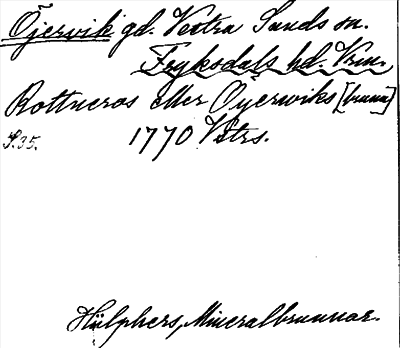 Öjervik gd. Vestra Sunds sn.
Fryksdals hd. Vrm.
Rottneros eller Oyerwiks [brunn]
S. 35. 1770 Vstrs.
Hülphers, Mineralbrunnar.